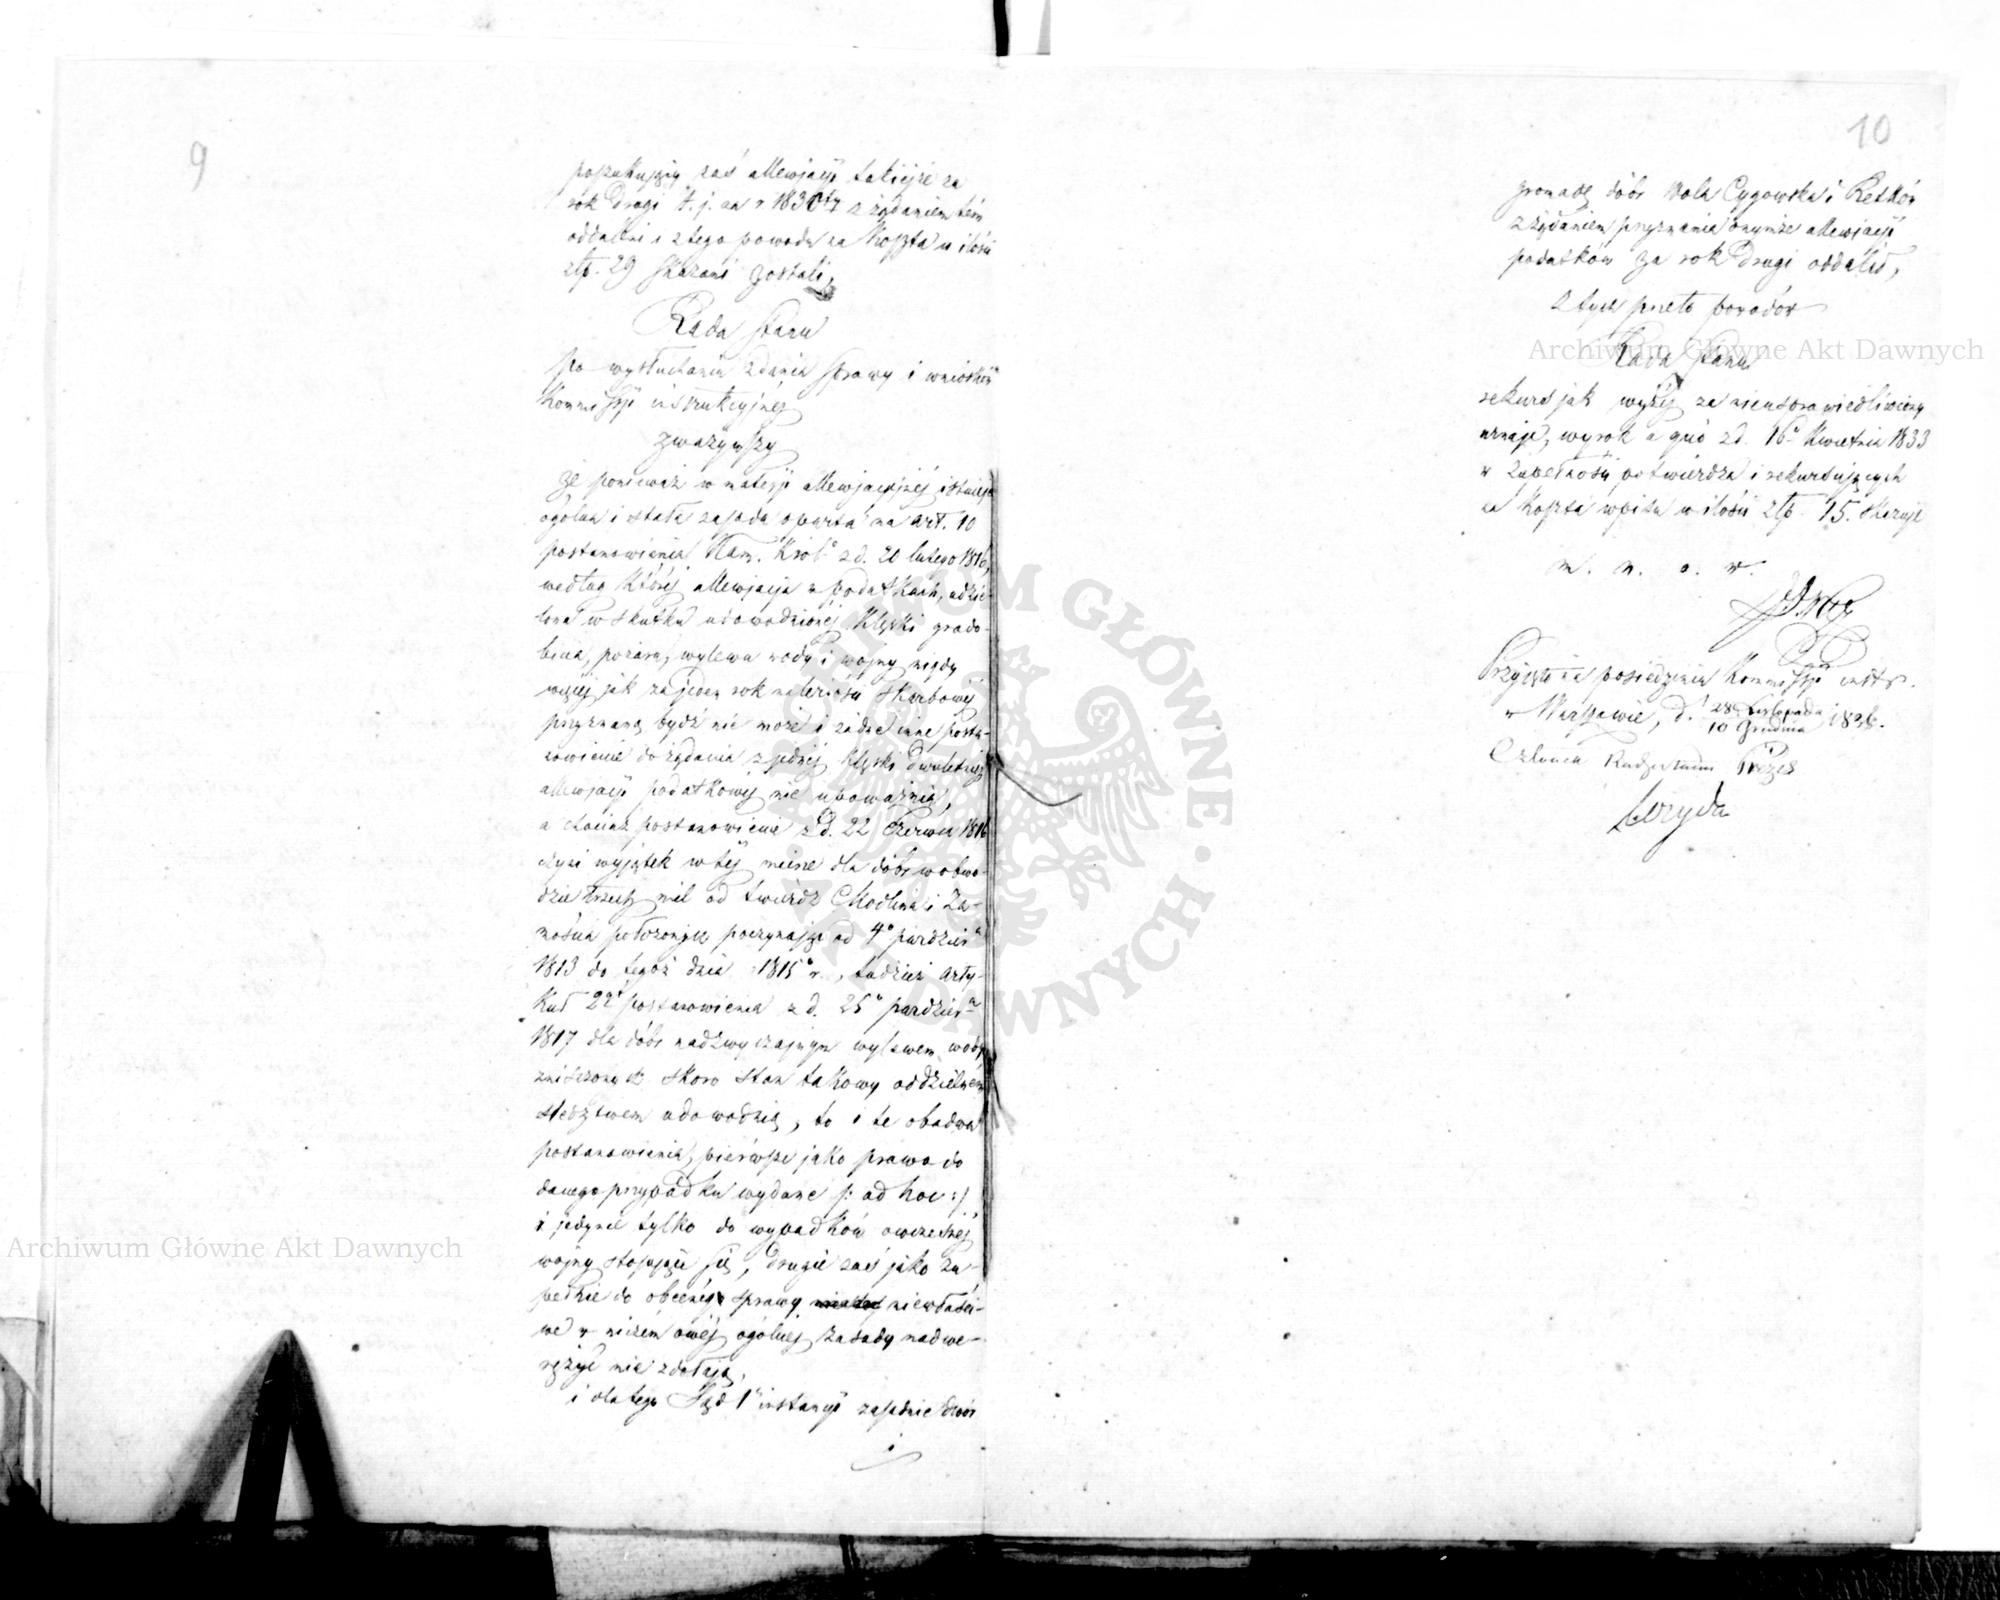 9
poszukujący zaś allewjacyi takiejże za
rok drugi t. j. na r. 1830/1 z żądaniem tém
oddaleni i z tego powodu na koszta w ilości
złp. 29 skazani zostali,
Rada Stanu
po wysłuchaniu zdania sprawy i wniosków
Kommissyi instrukcyjnéj
zważywszy
że ponieważ w materyi allewjacyjnéj istnieje
ogólna i stała zasada oparta na art. 10
postanowienia Nam. Król. z d. 20 lutego 1816,
według któréj allewjacja w podatkach, udzie-
lona w skutku udowodnionéj klęski grado-
bicia, pożaru, wylewu wody i wojny nigdy
więcéj jak za jeden rok należności skarbowéj
przyznaną bydź nie może i żadne inne posta-
nowienie do żądania z jednéj klęski dwuletniéj
allewjacyi podatkowéj nie upoważnia,
a chociaż postanowienie z d. 22 Czerwca 1816
czyni wyjątek w téj mierze dla dóbr w obwo-
dzie trzech mil od twierdz Modlina i Za-
mościa położonych poczynając od 4º paździer.
1813 do tegoż dnia 1815º r., tudzież arty-
kuł 22 postanowienia z d. 25º paździer.
1817 dla dóbr nadzwyczajnym wylewem wody
zniszczonych skoro stan takowy oddzielném
śledztwem udowodnią, to i te obadwa
postanowienia, piérwsze jako prawo do
danego przypadku wydane /: ad hoc :/,
i jedynie tylko do wypadków owczesnéj
wojny stosujące się, drugie zaś jako zu-
pełnie do obecnéj sprawy niewłaści-
we w niczém owéj ogólnéj zasady nadwe-
rężyć nie zdołają,
i dlatego Sąd 1 instancyi zasadnie dwór
10
gromadę dóbr Wola Cygowska i Retków
z żądaniem przyznania onymże allewjacyi
podatków za rok drugi oddalił,
z tych przeto powodów
Rada Stanu
rekurs jak wyżéj za nieusprawiedliwiony
uznaje, wyrok a quo z d. 16º Kwietnia 1833
w zupełności potwierdza i rekursujących
na koszta wpisu w ilości złp. 15. skazuje
m. n. o. w.
Przyjęto na posiedzeniu Kommissyi instr.
w Warszawie, d. 28 Listopada / 10 Grudnia 1838.
Członek Radzca Stanu Prezes
Archiwum Główne Akt Dawnych
Archiwum Główne Akt Dawnych
ARCHIWUM GŁÓWNE AKT DAWNYCH